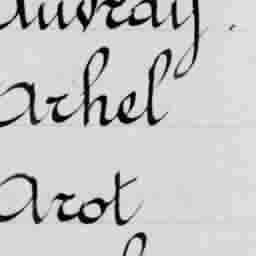 Auvray.
Arhel
Arot